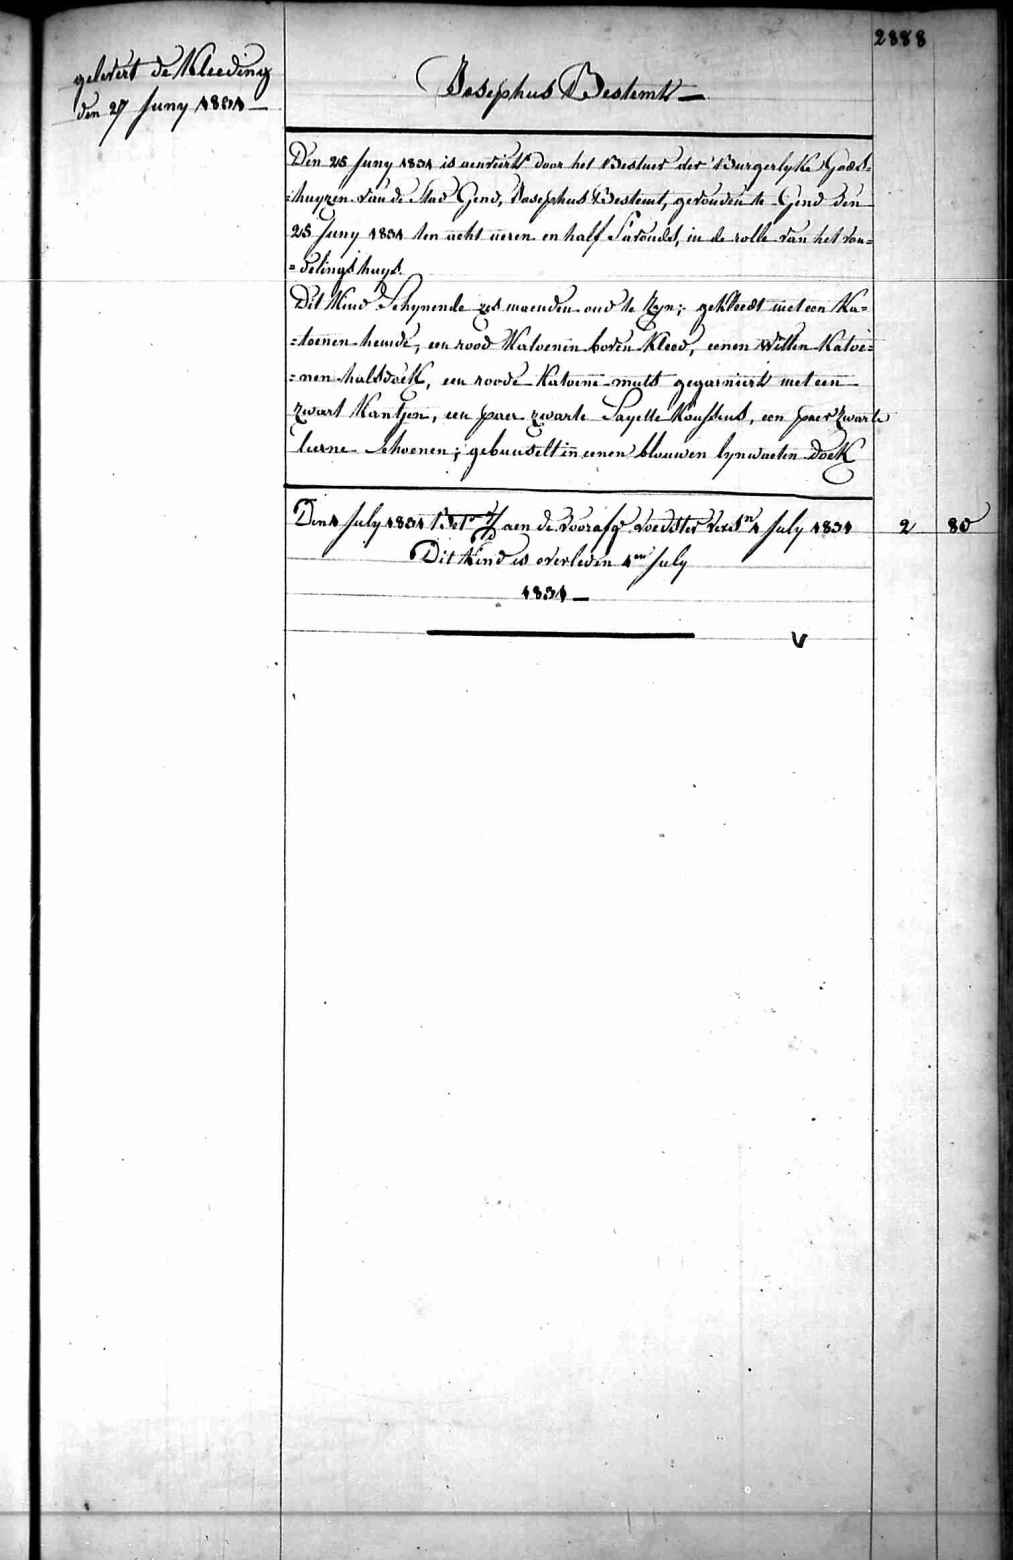 2888
gelevert de Kleeding
den 27 Juny 1831 —
Josephus Bestemt —
Den 25 Juny 1831 is aenveirt door het Bestuer der Burgerlyke Godts-
=huyzen van de Stad Gend, Josephus Bestemt, gevonden te Gend den
25 Juny 1831 ten acht ueren en half S'avonds, in de rolle van het von=
=delings huys.
Dit Kind Schynende zes maenden oud te Zyn; gekleedt met een Ka=
=toenen hemde, een rood Katoenen boven Kleed, eenen Witten Katoe=
=nen halsdoek, een roode Katoene muts gegarniert met een
zwart Kantjen, een paer zwarte Sayette Kouskens, een paer zwarte
leerne Schoenen; gebuuselt in eenen blauwen lynwaeten doek
Den 4 July 1831 Bet. aen de voorafg. voedster 4 July 1831 2 80
Dit Kind is overleden 4en July
1831 —
V